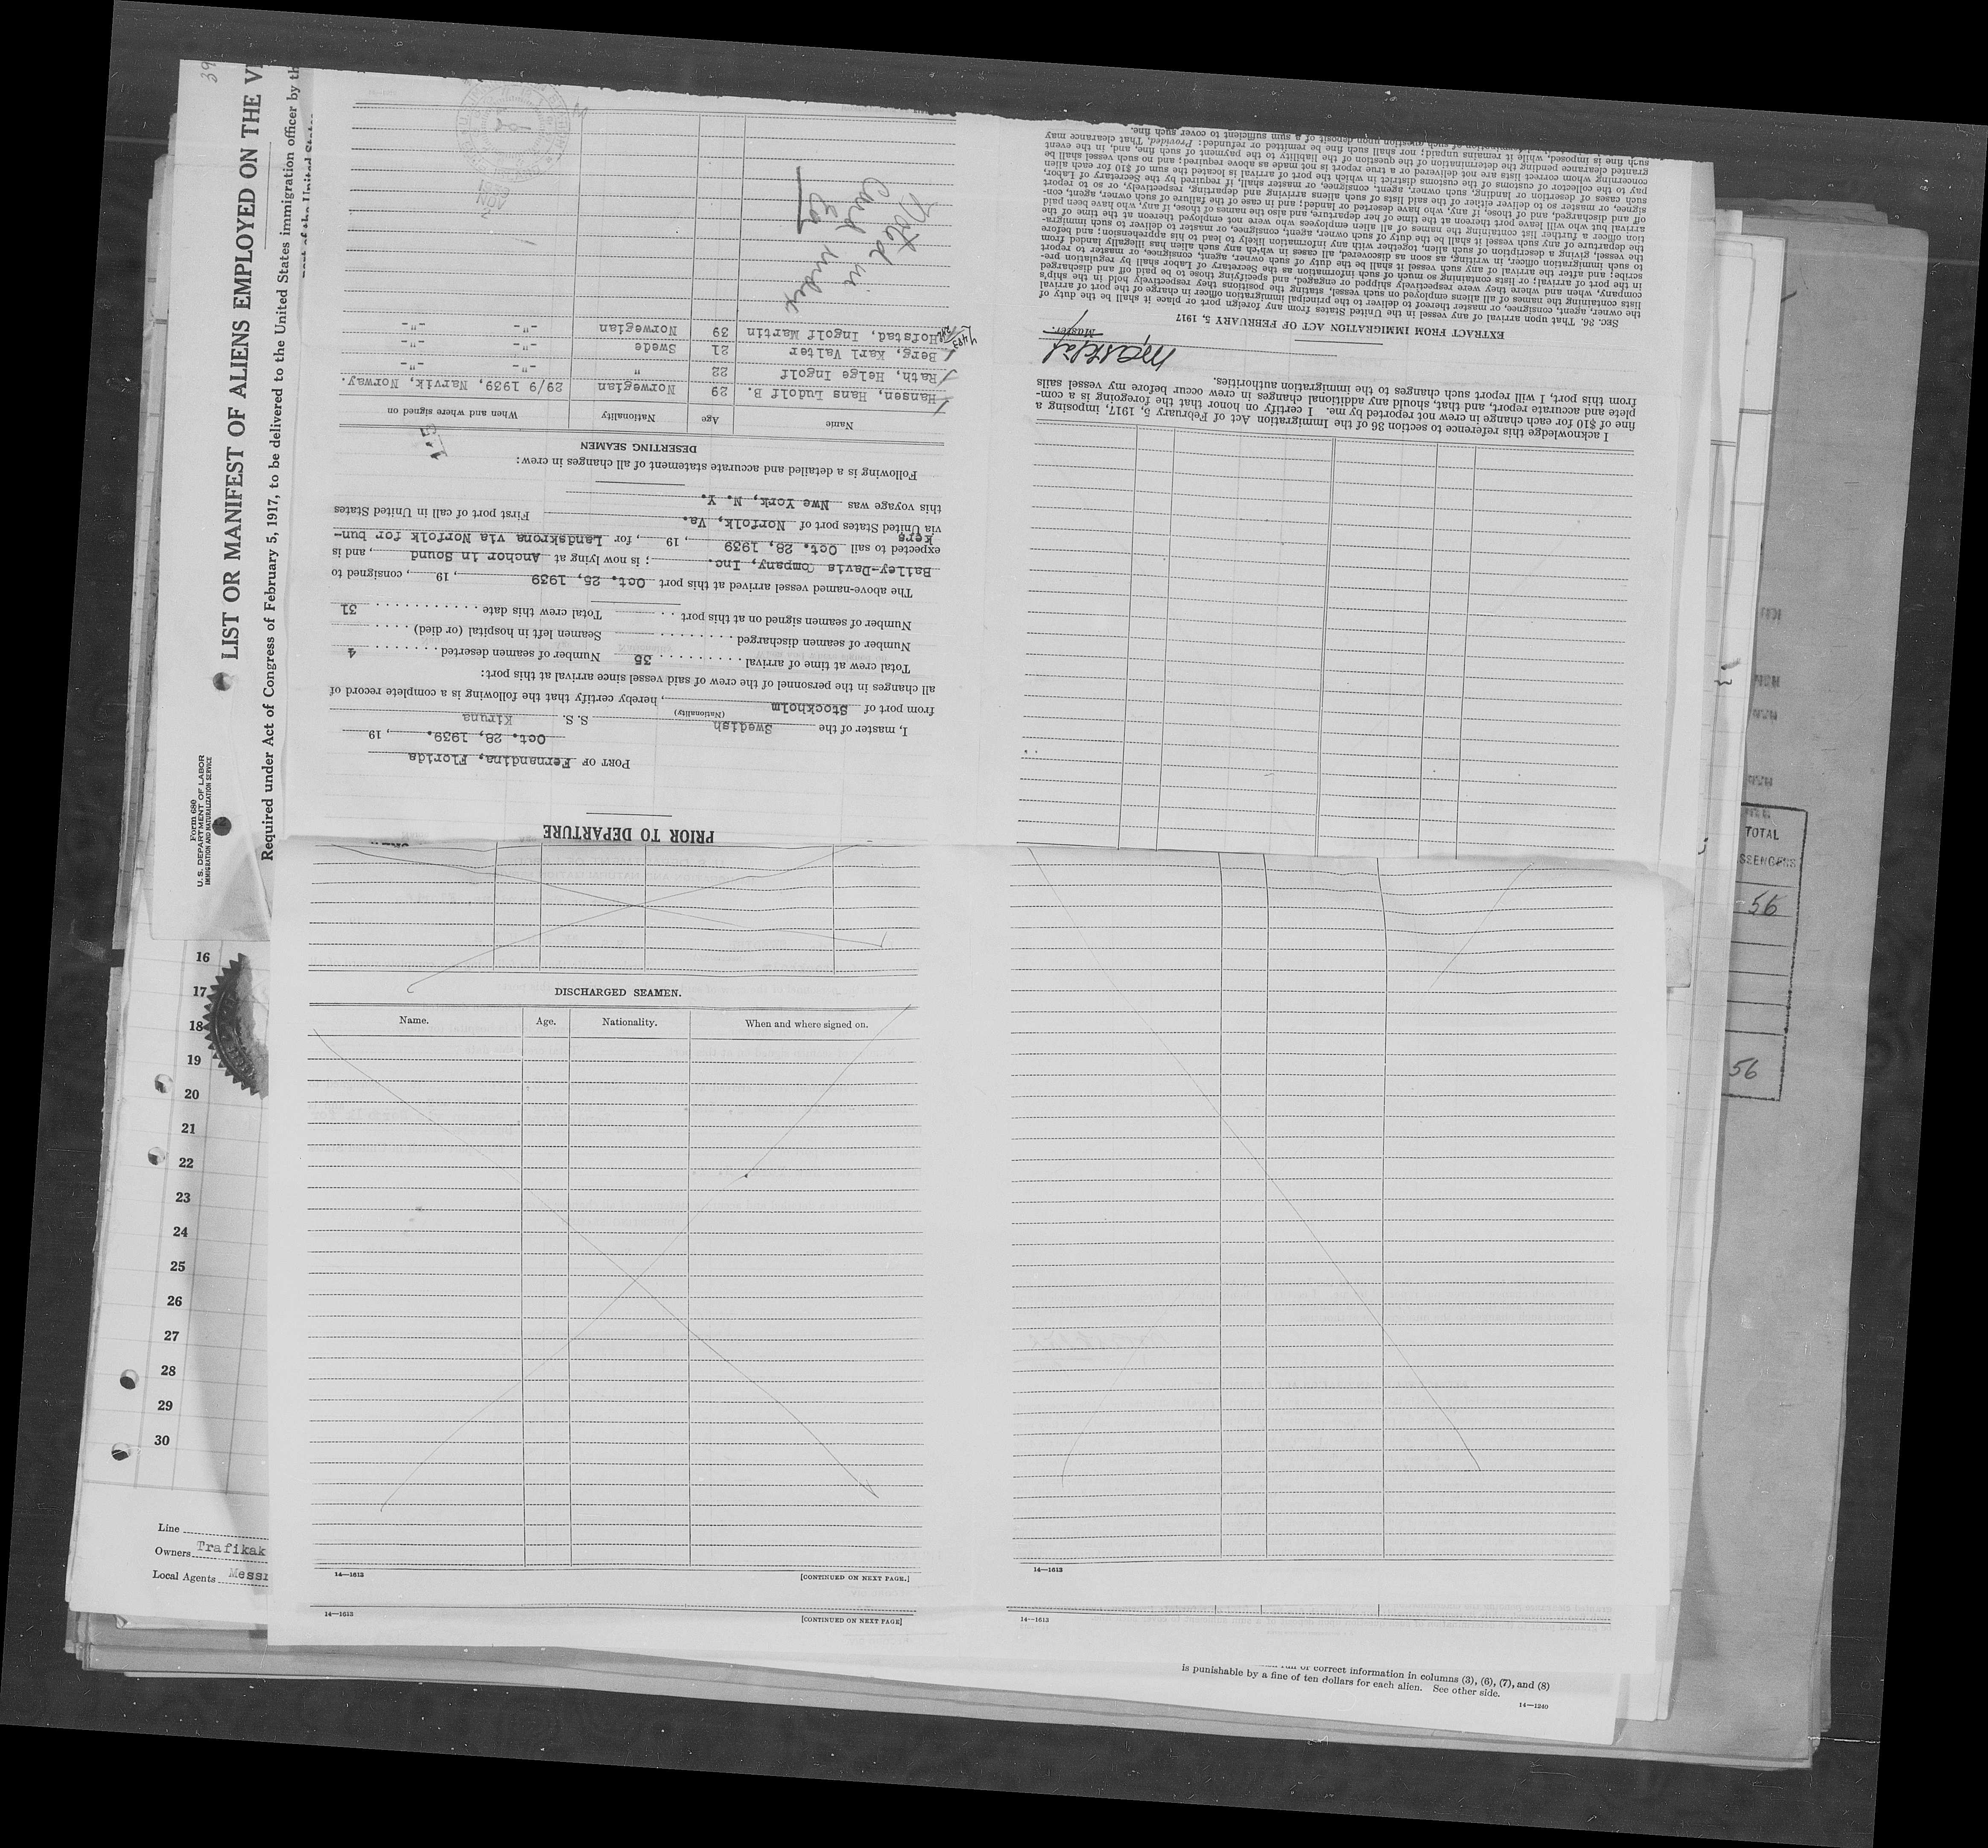 PRIOR TO DEPARTURE
PORT OF Fernandina, Florida
Oct. 28, 1939. , 19
I, master of the Swedish S. S. Kiruna
(Nationality)
from port of Stockholm , hereby certify that the following is a complete record of
all changes in the personnel of the crew of said vessel since arrival at this port:
Total crew at time of arrival . . . . . . . . . 35 Number of seamen deserted . . . . . . . 4
Number of seamen discharged . . . . . . . . Seamen left in hospital (or died) . . . .
Number of seamen signed on at this port . . Total crew this date . . . . . . . . . . . 31
The above-named vessel arrived at this port Oct. 25, 1939 , 19 , consigned to
Bailey-Davis Company, Inc. ; is now lying at Anchor in Sound , and is
expected to sail Oct. 28, 1939 , 19 , for Landskrona via Norfolk for bun-
kers
via United States port of Norfolk, Va. First port of call in United States
this voyage was Nwe York, N. Y.
Following is a detailed and accurate statement of all changes in crew:
DESERTING SEAMEN
Name Age Nationality When and where signed on
Hansen, Hans Ludolf B. 29 Norwegian 29/9 1939, Narvik, Norway.
Rath, Helge Ingolf 22 " -"- -"-
Berg, Karl Valter 21 Swede -"- -"-
Hofstad, Ingolf Martin 39 Norwegian -"- -"-
Noted in
Card index
1939 NOV 2
I acknowledge this reference to section 36 of the Immigration Act of February 5, 1917, imposing a
fine of $10 for each change in crew not reported by me. I certify on honor that the foregoing is a com-
plete and accurate report, and that, should any additional changes in crew occur before my vessel sails
from this port, I will report such changes to the immigration authorities.
Master.
EXTRACT FROM IMMIGRATION ACT OF FEBRUARY 5, 1917
Sec. 36. That upon arrival of any vessel in the United States from any foreign port or place it shall be the duty of
the owner, agent, consignee, or master thereof to deliver to the principal immigration officer in charge of the port of arrival
lists containing the names of all aliens employed on such vessel, stating the positions they respectively hold in the ship's
company, when and where they were respectively shipped or engaged, and specifying those to be paid off and discharged
in the port of arrival; or lists containing so much of such information as the Secretary of Labor shall by regulation pre-
scribe; and after the arrival of any such vessel it shall be the duty of such owner, agent, consignee, or master to report
to such immigration officer, in writing, as soon as discovered, all cases in which any such alien has illegally landed from
the vessel, giving a description of such alien, together with any information likely to lead to his apprehension; and before
the departure of any such vessel it shall be the duty of such owner, agent, consignee, or master to deliver to such immigra-
tion officer a further list containing the names of all alien employees who were not employed thereon at the time of the
arrival but who will leave port thereon at the time of her departure, and also the names of those, if any, who have been paid
off and discharged, and of those, if any, who have deserted or landed; and in case of the failure of such owner, agent, con-
signee, or master so to deliver either of the said lists of such aliens arriving and departing, respectively, or so to report
such cases of desertion or landing, such owner, agent, consignee, or master shall, if required by the Secretary of Labor,
pay to the collector of customs of the customs district in which the port of arrival is located the sum of $10 for each alien
concerning whom correct lists are not delivered or a true report is not made as above required; and no such vessel shall be
granted clearance pending the determination of the question of the liability to the payment of such fine, and, in the event
such fine is imposed, while it remains unpaid; nor shall such fine be remitted or refunded: Provided, That clearance may
of such question upon deposit of a sum sufficient to cover such fine.
Form 680
U. S. DEPARTMENT OF LABOR
IMMIGRATION AND NATURALIZATION SERVICE
LIST OR MANIFEST OF ALIENS EMPLOYED ON THE
Required under Act of Congress of February 5, 1917, to be delivered to the United States immigration officer by
39
DISCHARGED SEAMEN.
Name. Age. Nationality. When and where signed on.
14—1613 [CONTINUED ON NEXT PAGE.]
14—1613 [CONTINUED ON NEXT PAGE]
14—1613
14—1613
16
17
18
19
20
21
22
23
24
25
26
27
28
29
30
Line
Owners Trafikak
Local Agents Messr
TOTAL
56
56
of correct information in columns (3), (6), (7), and (8)
is punishable by a fine of ten dollars for each alien. See other side.
14—1240